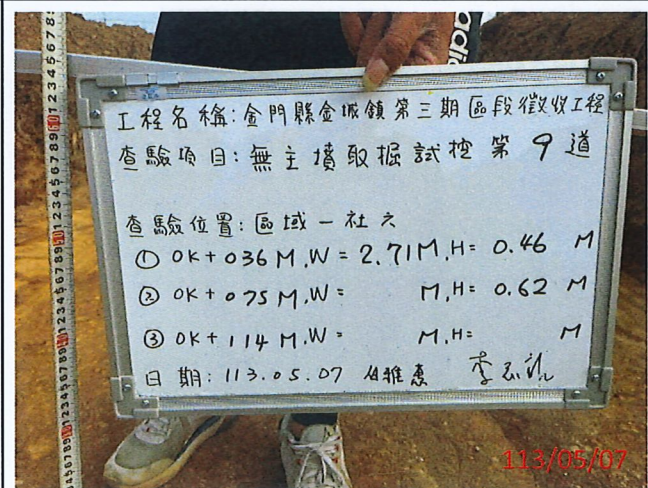 adidas
工程名稱:金門縣金城鎮第三期區段徵收工程
查驗項目:無主墳取掘試挖第9道
查驗位置:區域一社六
① 0K+036M,W=2.71M,H=0.46 M
② 0K+075M,W= M,H=0.62 M
③ 0K+114M,W= M,H= M
日期:113.05.07
113/05/07